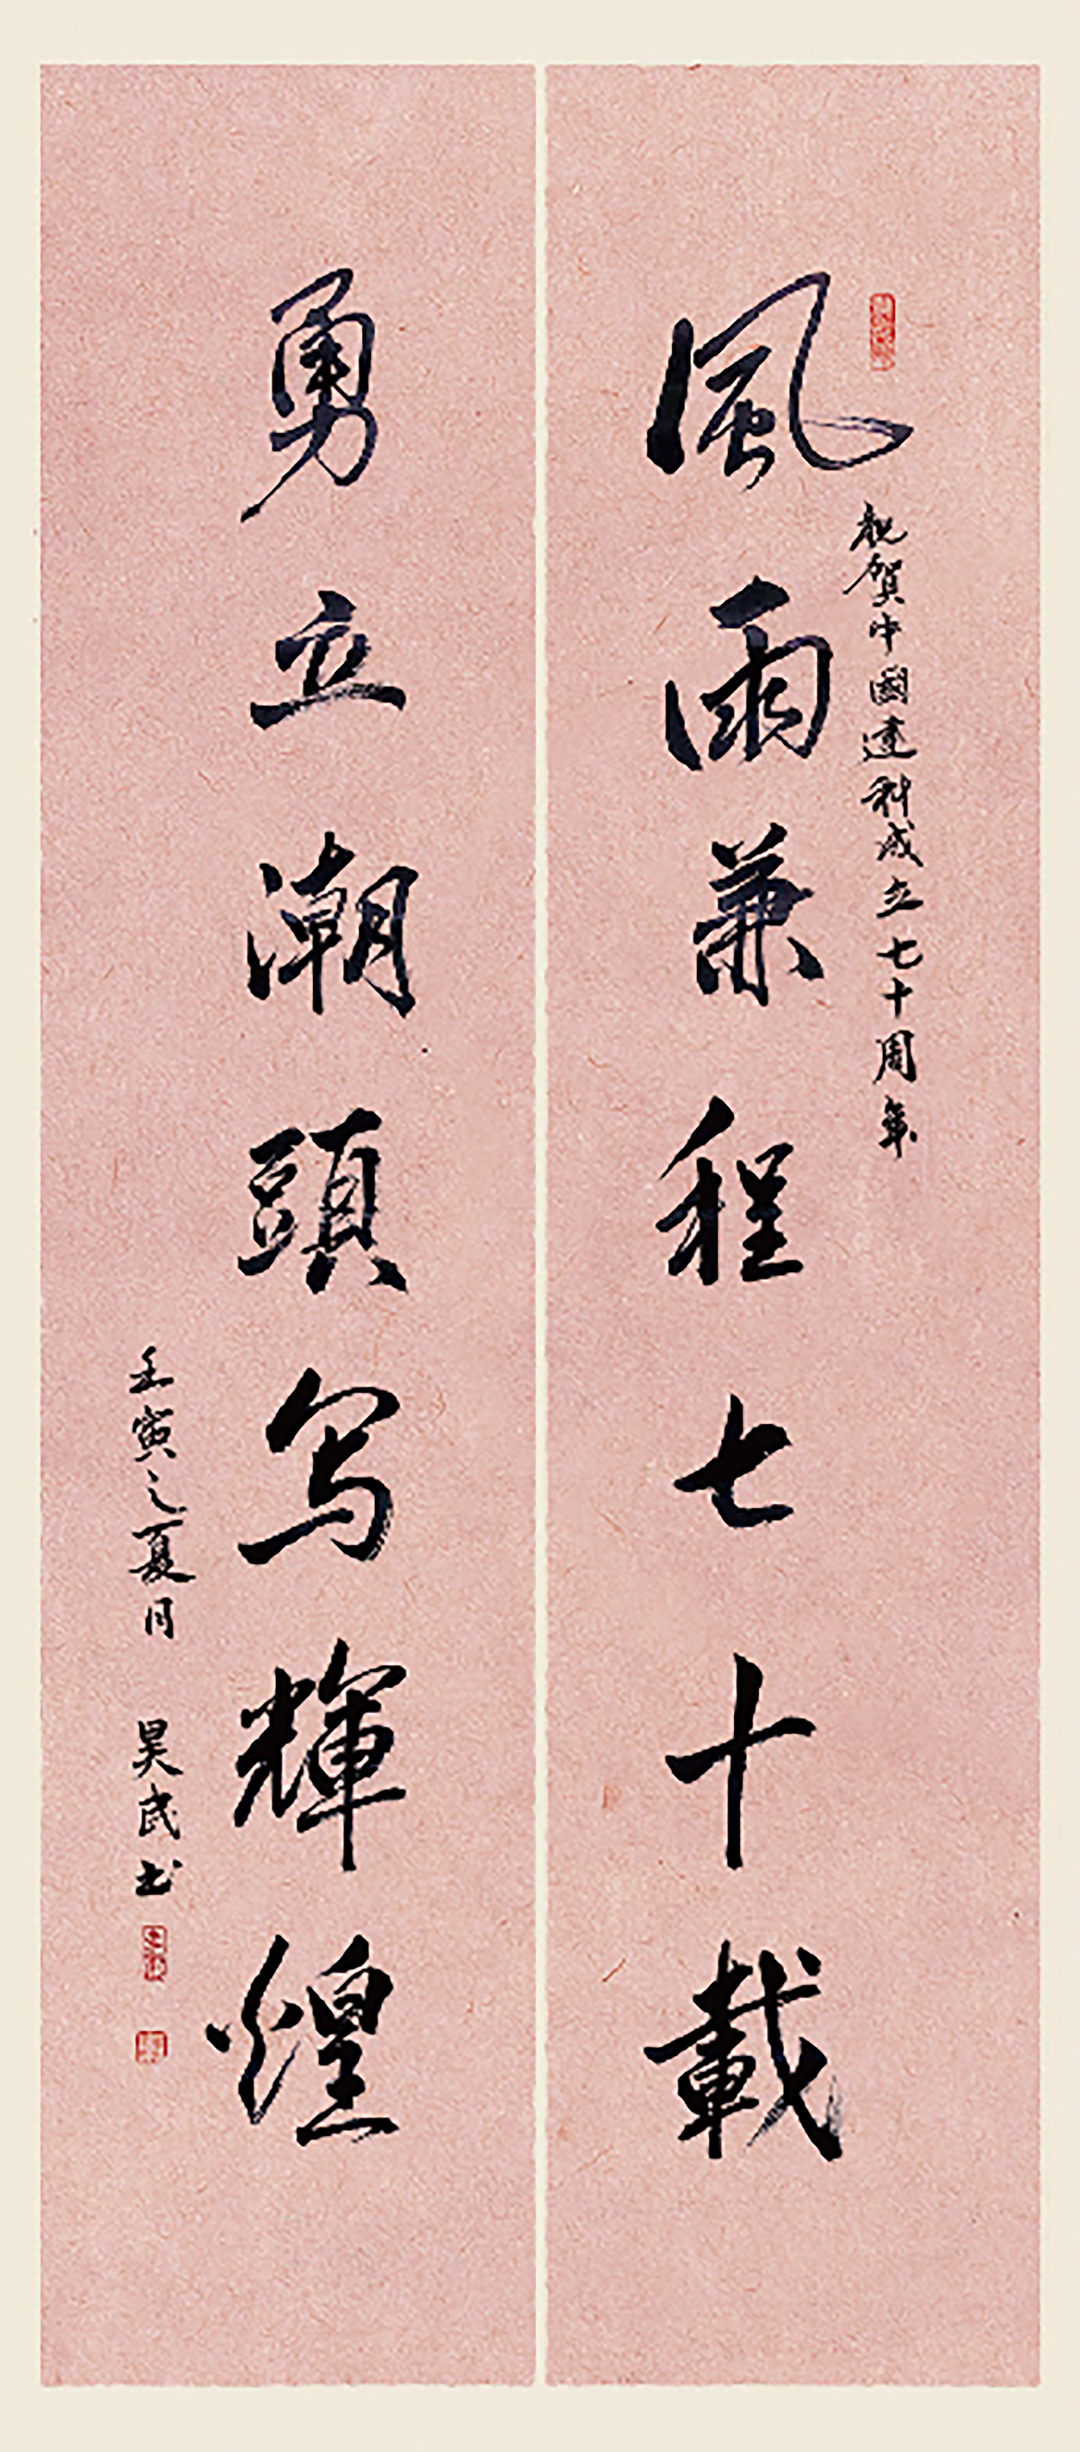 風雨兼程七十載
祝贺中國建科成立七十周年
勇立潮頭写輝煌
壬寅之夏月 昊民书